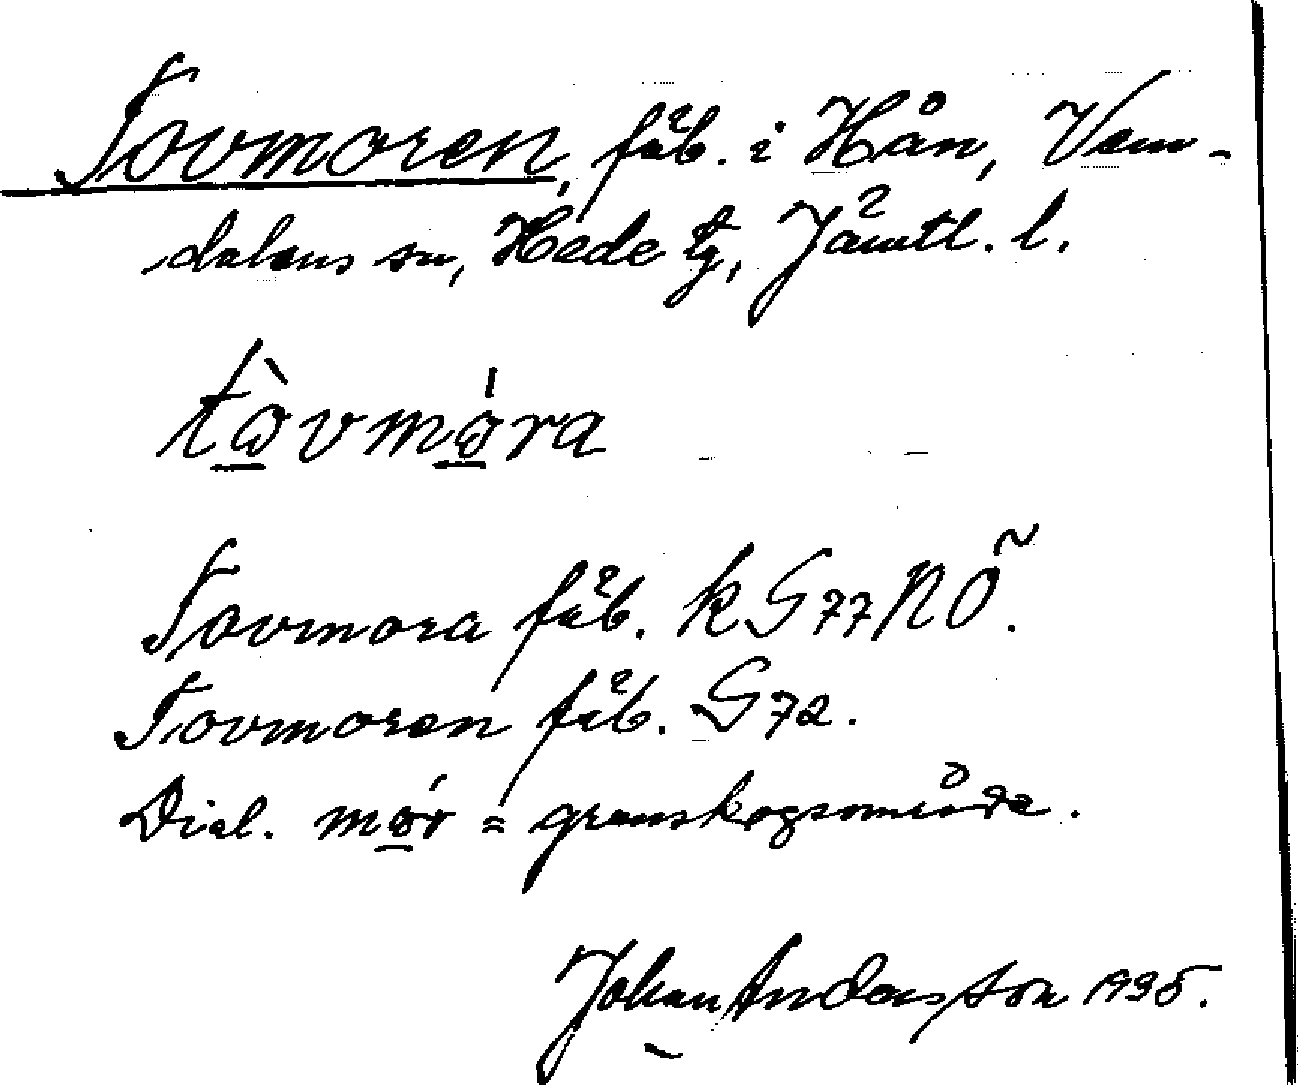 Tovmoren, fäb. i Hån, Vem-
dalens sn, Hede tg, Jämtl. l.
tòvmóra
Tovmora fäb. k G 77 NÖ.
Tovmoren fäb. G 72.
Dial. mór = granskogsområde.
Johan Andersson 1935.